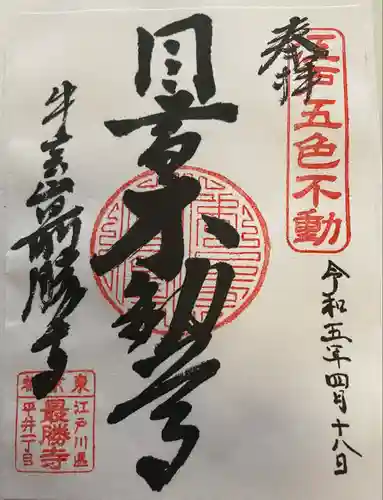 奉拝
江戸五色不動
令和五年四月十八日
目黄不動尊
牛宝山最勝寺
東京都
江戸川區
最勝寺
平井一丁目